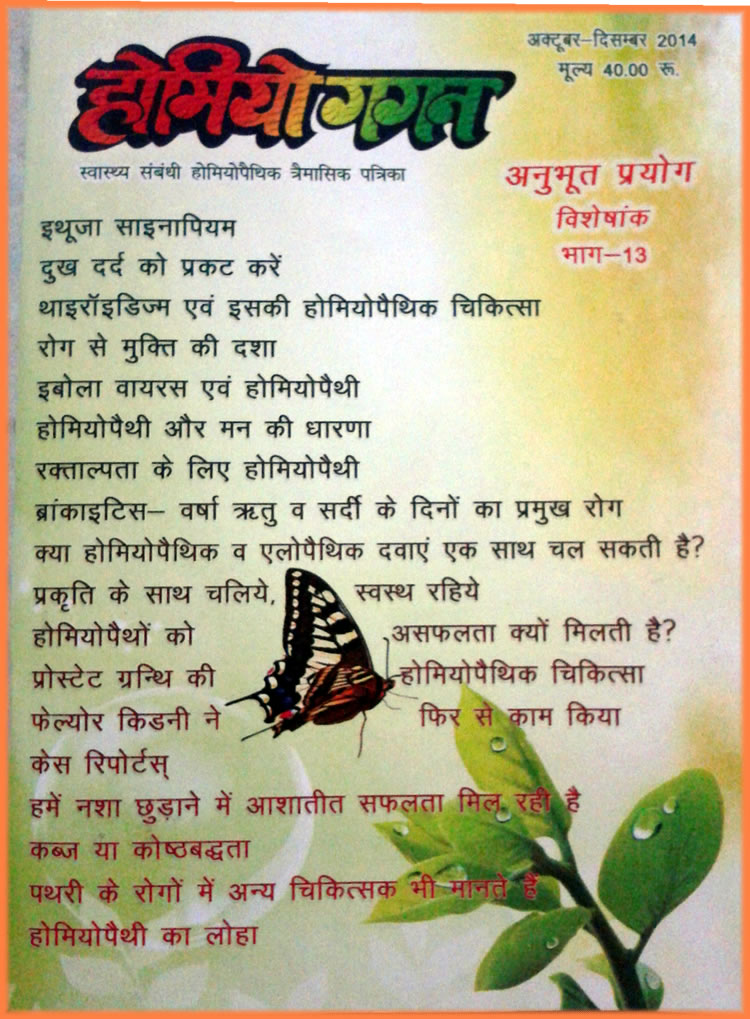 अक्टूबर–दिसम्बर 2014
मूल्य 40.00 रू.
होमियो गगन
स्वास्थ्य संबंधी होमियोपैथिक त्रैमासिक पत्रिका
अनुभूत प्रयोग
विशेषांक
भाग–13
इथूजा साइनापियम
दुख दर्द को प्रकट करें
थाइरॉइडिज्म एवं इसकी होमियोपैथिक चिकित्सा
रोग से मुक्ति की दशा
इबोला वायरस एवं होमियोपैथी
होमियोपैथी और मन की धारणा
रक्ताल्पता के लिए होमियोपैथी
ब्रांकाइटिस– वर्षा ऋतु व सर्दी के दिनों का प्रमुख रोग
क्या होमियोपैथिक व एलोपैथिक दवाएं एक साथ चल सकती है?
प्रकृति के साथ चलिये, स्वस्थ रहिये
होमियोपैथों को असफलता क्यों मिलती है?
प्रोस्टेट ग्रन्थि की होमियोपैथिक चिकित्सा
फेल्योर किडनी ने फिर से काम किया
केस रिपोर्टस्
हमें नशा छुड़ाने में आशातीत सफलता मिल रही है
कब्ज या कोष्ठबद्धता
पथरी के रोगों में अन्य चिकित्सक भी मानते हैं
होमियोपैथी का लोहा